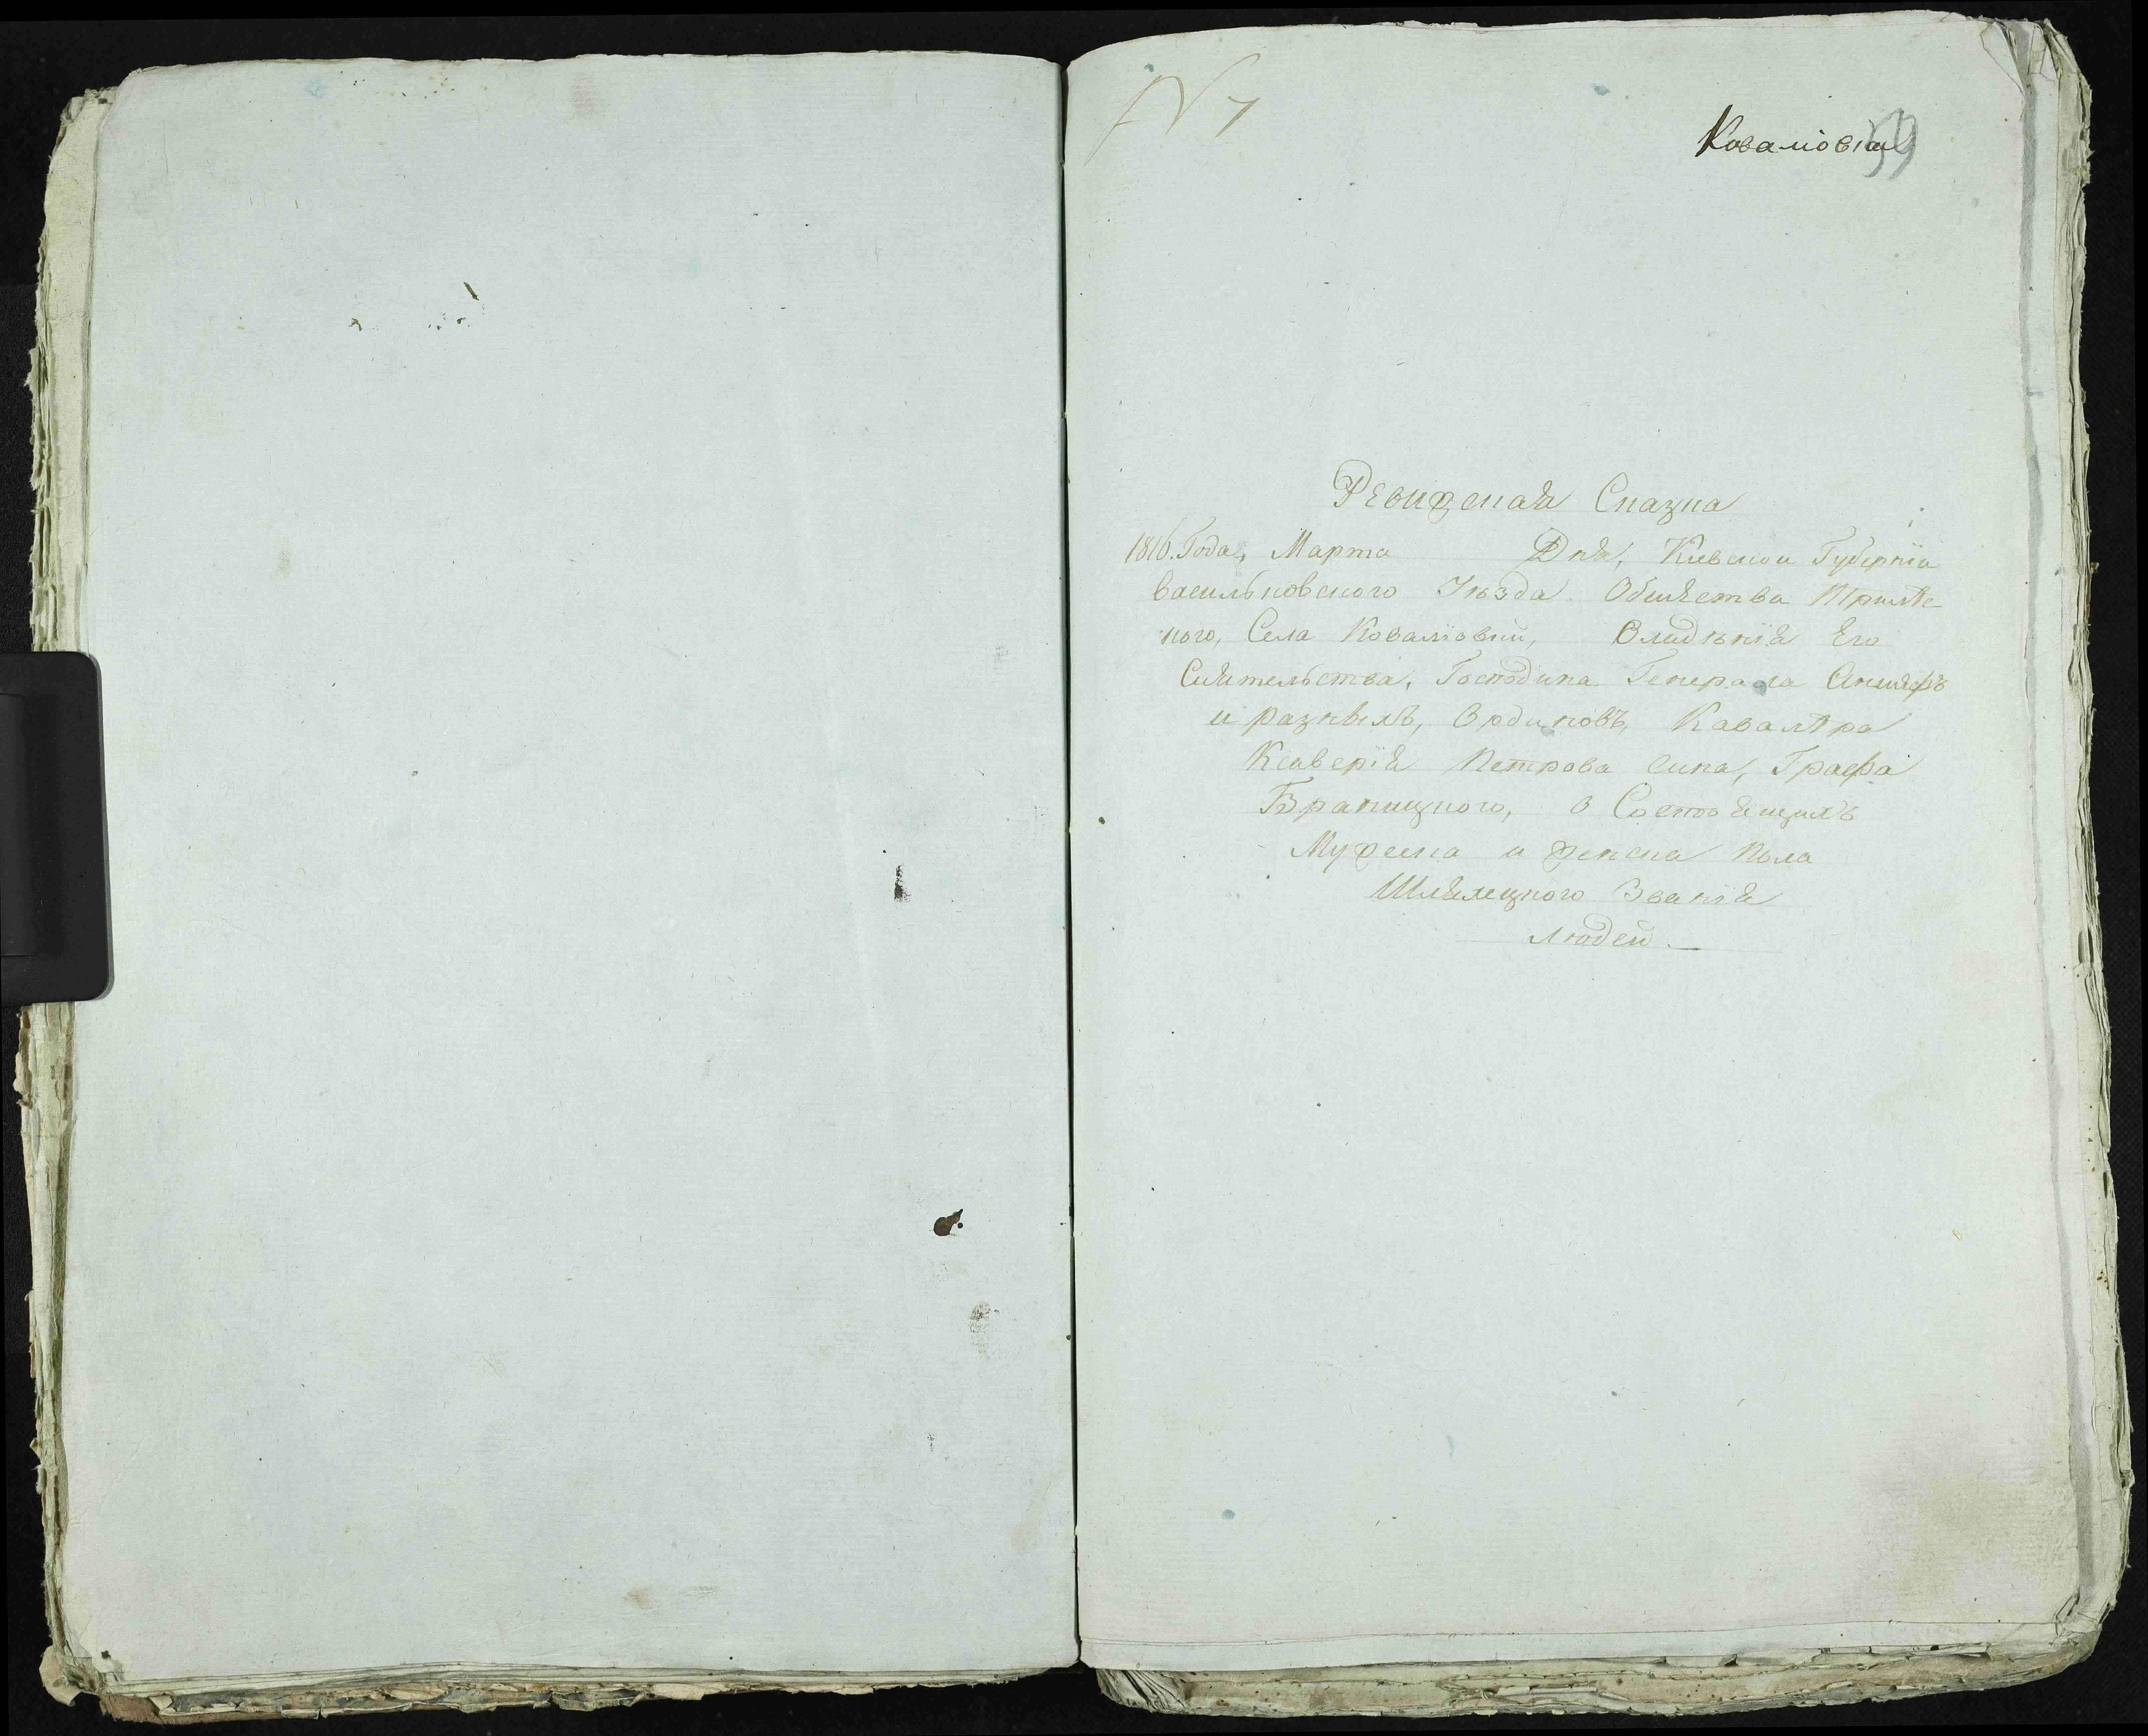 N 7
Ковалiовки
59
Ревижская Сказка
1816. Года, Марта Дня, Киевской Губернiи
васильковского Уѣзда Общества Трилѣс
кого, Села Ковалiовки, Владѣнiя Его
Сиятельства, Господина Генерала Аншефъ
и разныхъ, Ординовъ, Кавалѣра
Ксаверiя Петрова Сина, Графа
Браницкого, о Состоящихъ
Мужеска и женска пола
Шляхецкого Званiя
людей.—